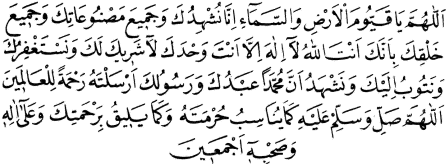 اَللّٰهُمَّ يَا قَيُّومَ الْاَرْضِ وَالسَّمَٓاءِ اِنَّا نُشْهِدُكَ وَجَمِيعَ مَصْنُوعَاتِكَ وَجَمِيعَ
خَلْقِكَ بِاَنَّكَ اَنْتَ اللّٰهُ لَٓا اِلٰهَ اِلَّٓا اَنْتَ وَحْدَكَ لَا شَرِيكَ لَكَ وَنَسْتَغْفِرُكَ
وَنَتُوبُ اِلَيْكَ وَنَشْهَدُ اَنَّ مُحَمَّدًا عَبْدُكَ وَرَسُولُكَ اَرْسَلْتَهُ رَحْمَةً لِلْعَالَمِينَ
اَللّٰهُمَّ صَلِّ وَسَلِّمْ عَلَيْهِ كَمَا يُنَاسِبُ حُرْمَتَهُ وَكَمَا يَلِيقُ بِرَحْمَتِكَ وَعَلٰٓى اٰلِهِ
وَصَحْبِهِٓ اَجْمَعِينَ